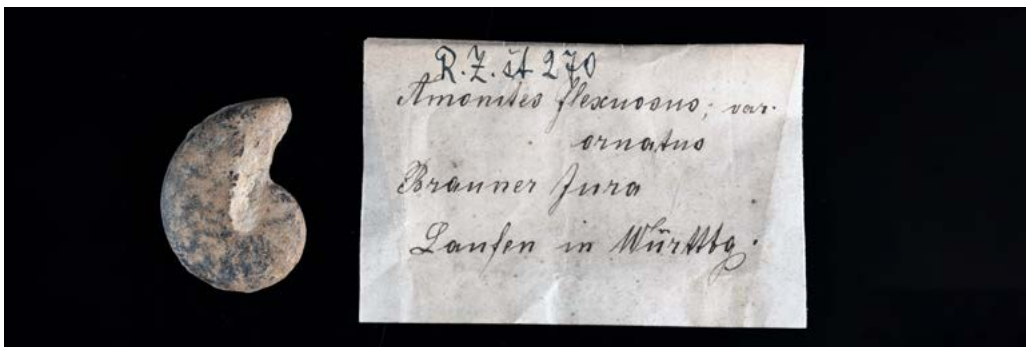 R.Z. št 270
Amonites flexuosus; var.
ornatus
Brauner Jura
Laufen in Württbg.